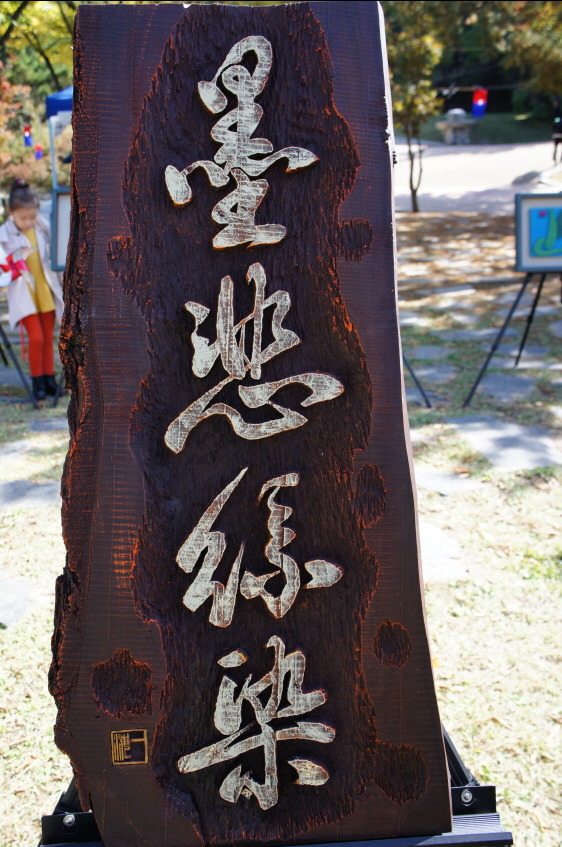 墨悲絲染